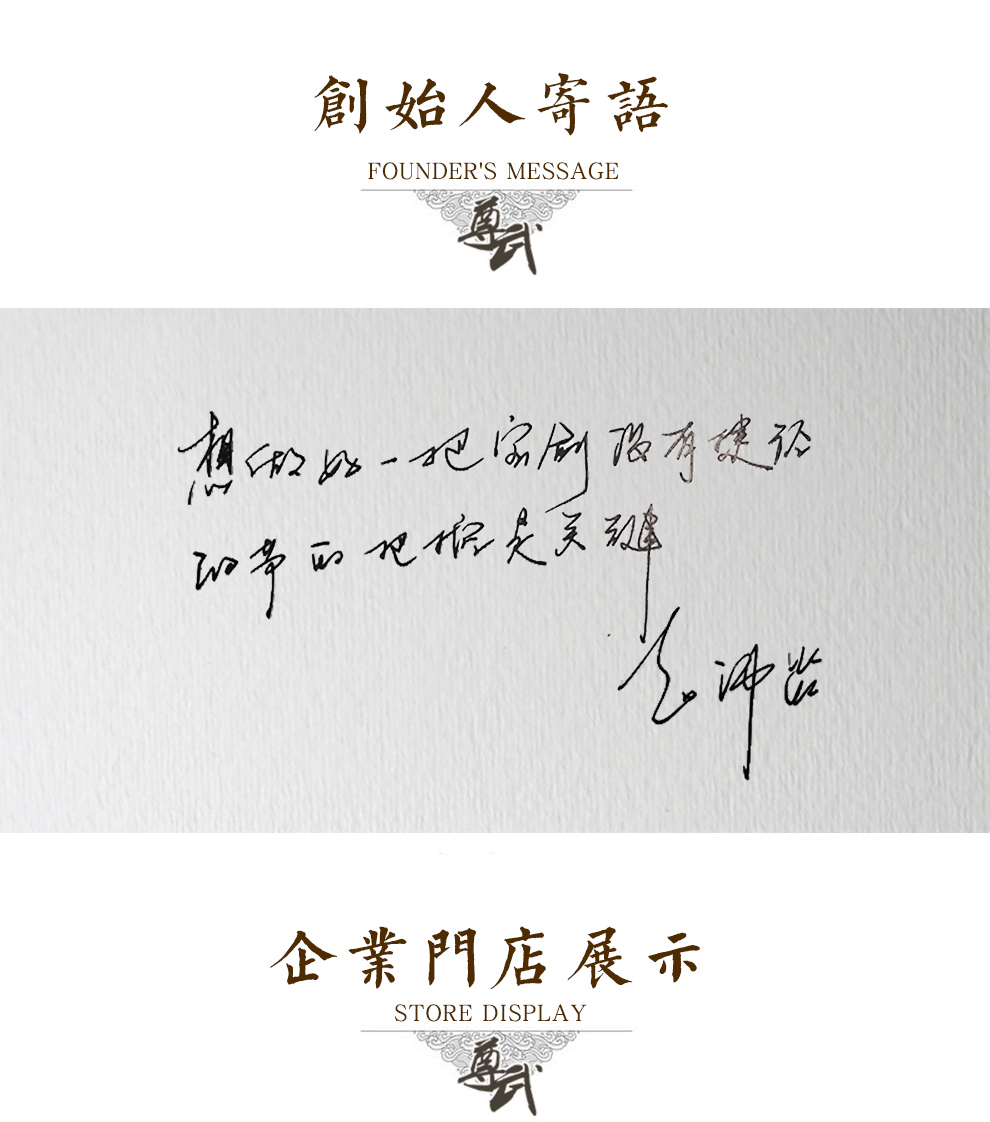 創始人寄語
FOUNDER'S MESSAGE
尊武
想做好一把宝剑没有捷径
的把握是关键
企業門店展示
STORE DISPLAY
尊武